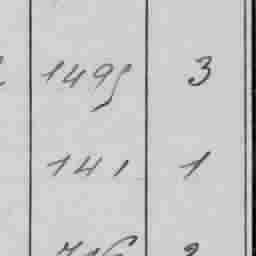 1495 3
141 1